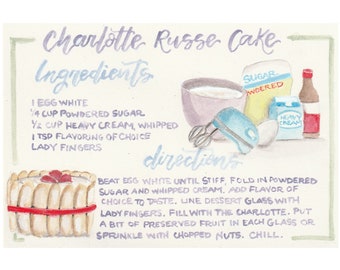 Charlotte Russe Cake
Ingredients
1 EGG WHITE
1/4 CUP POWDERED SUGAR
1/2 CUP HEAVY CREAM, WHIPPED
1 TSP FLAVORING OF CHOICE
LADY FINGERS
SUGAR
POWDERED
HEAVY
CREAM
directions
BEAT EGG WHITE UNTIL STIFF, FOLD IN POWDERED
SUGAR AND WHIPPED CREAM. ADD FLAVOR OF
CHOICE TO TASTE. LINE DESSERT GLASS WITH
LADY FINGERS. FILL WITH THE CHARLOTTE. PUT
A BIT OF PRESERVED FRUIT IN EACH GLASS OR
SPRINKLE WITH CHOPPED NUTS. CHILL.